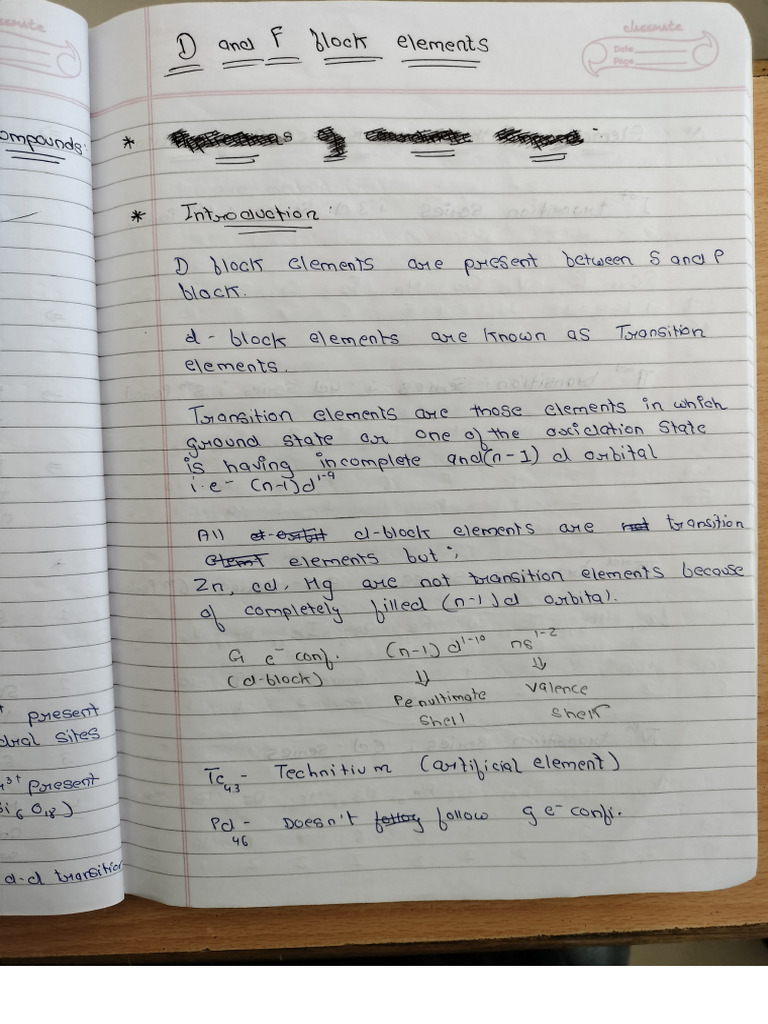 classmate
Date
Page
D and F block elements
ompounds:
* Introduction:
D block elements are present between S and P
block.
d- block elements are known as Transition
elements.
Transition elements are those elements in which
ground state or one of the oxidation state
is having incomplete and (n-1) d orbital
i.e- (n-1)d¹⁻⁹
All d-block elements are transition
elements but ;
Zn, cd, Hg are not transition elements because
of completely filled (n-1)d orbital.
G e⁻ conf. (n-1) d¹⁻¹⁰ ns¹⁻²
(d-block) ⇓ ⇓
Penultimate Valence
Shell Shell
Tc₄₃- Technitium (artificial element)
Pd - Doesn't follow g e⁻ confi.
46
present
dral sites
³⁺ present
Si₆O₁₈)
d-d transition